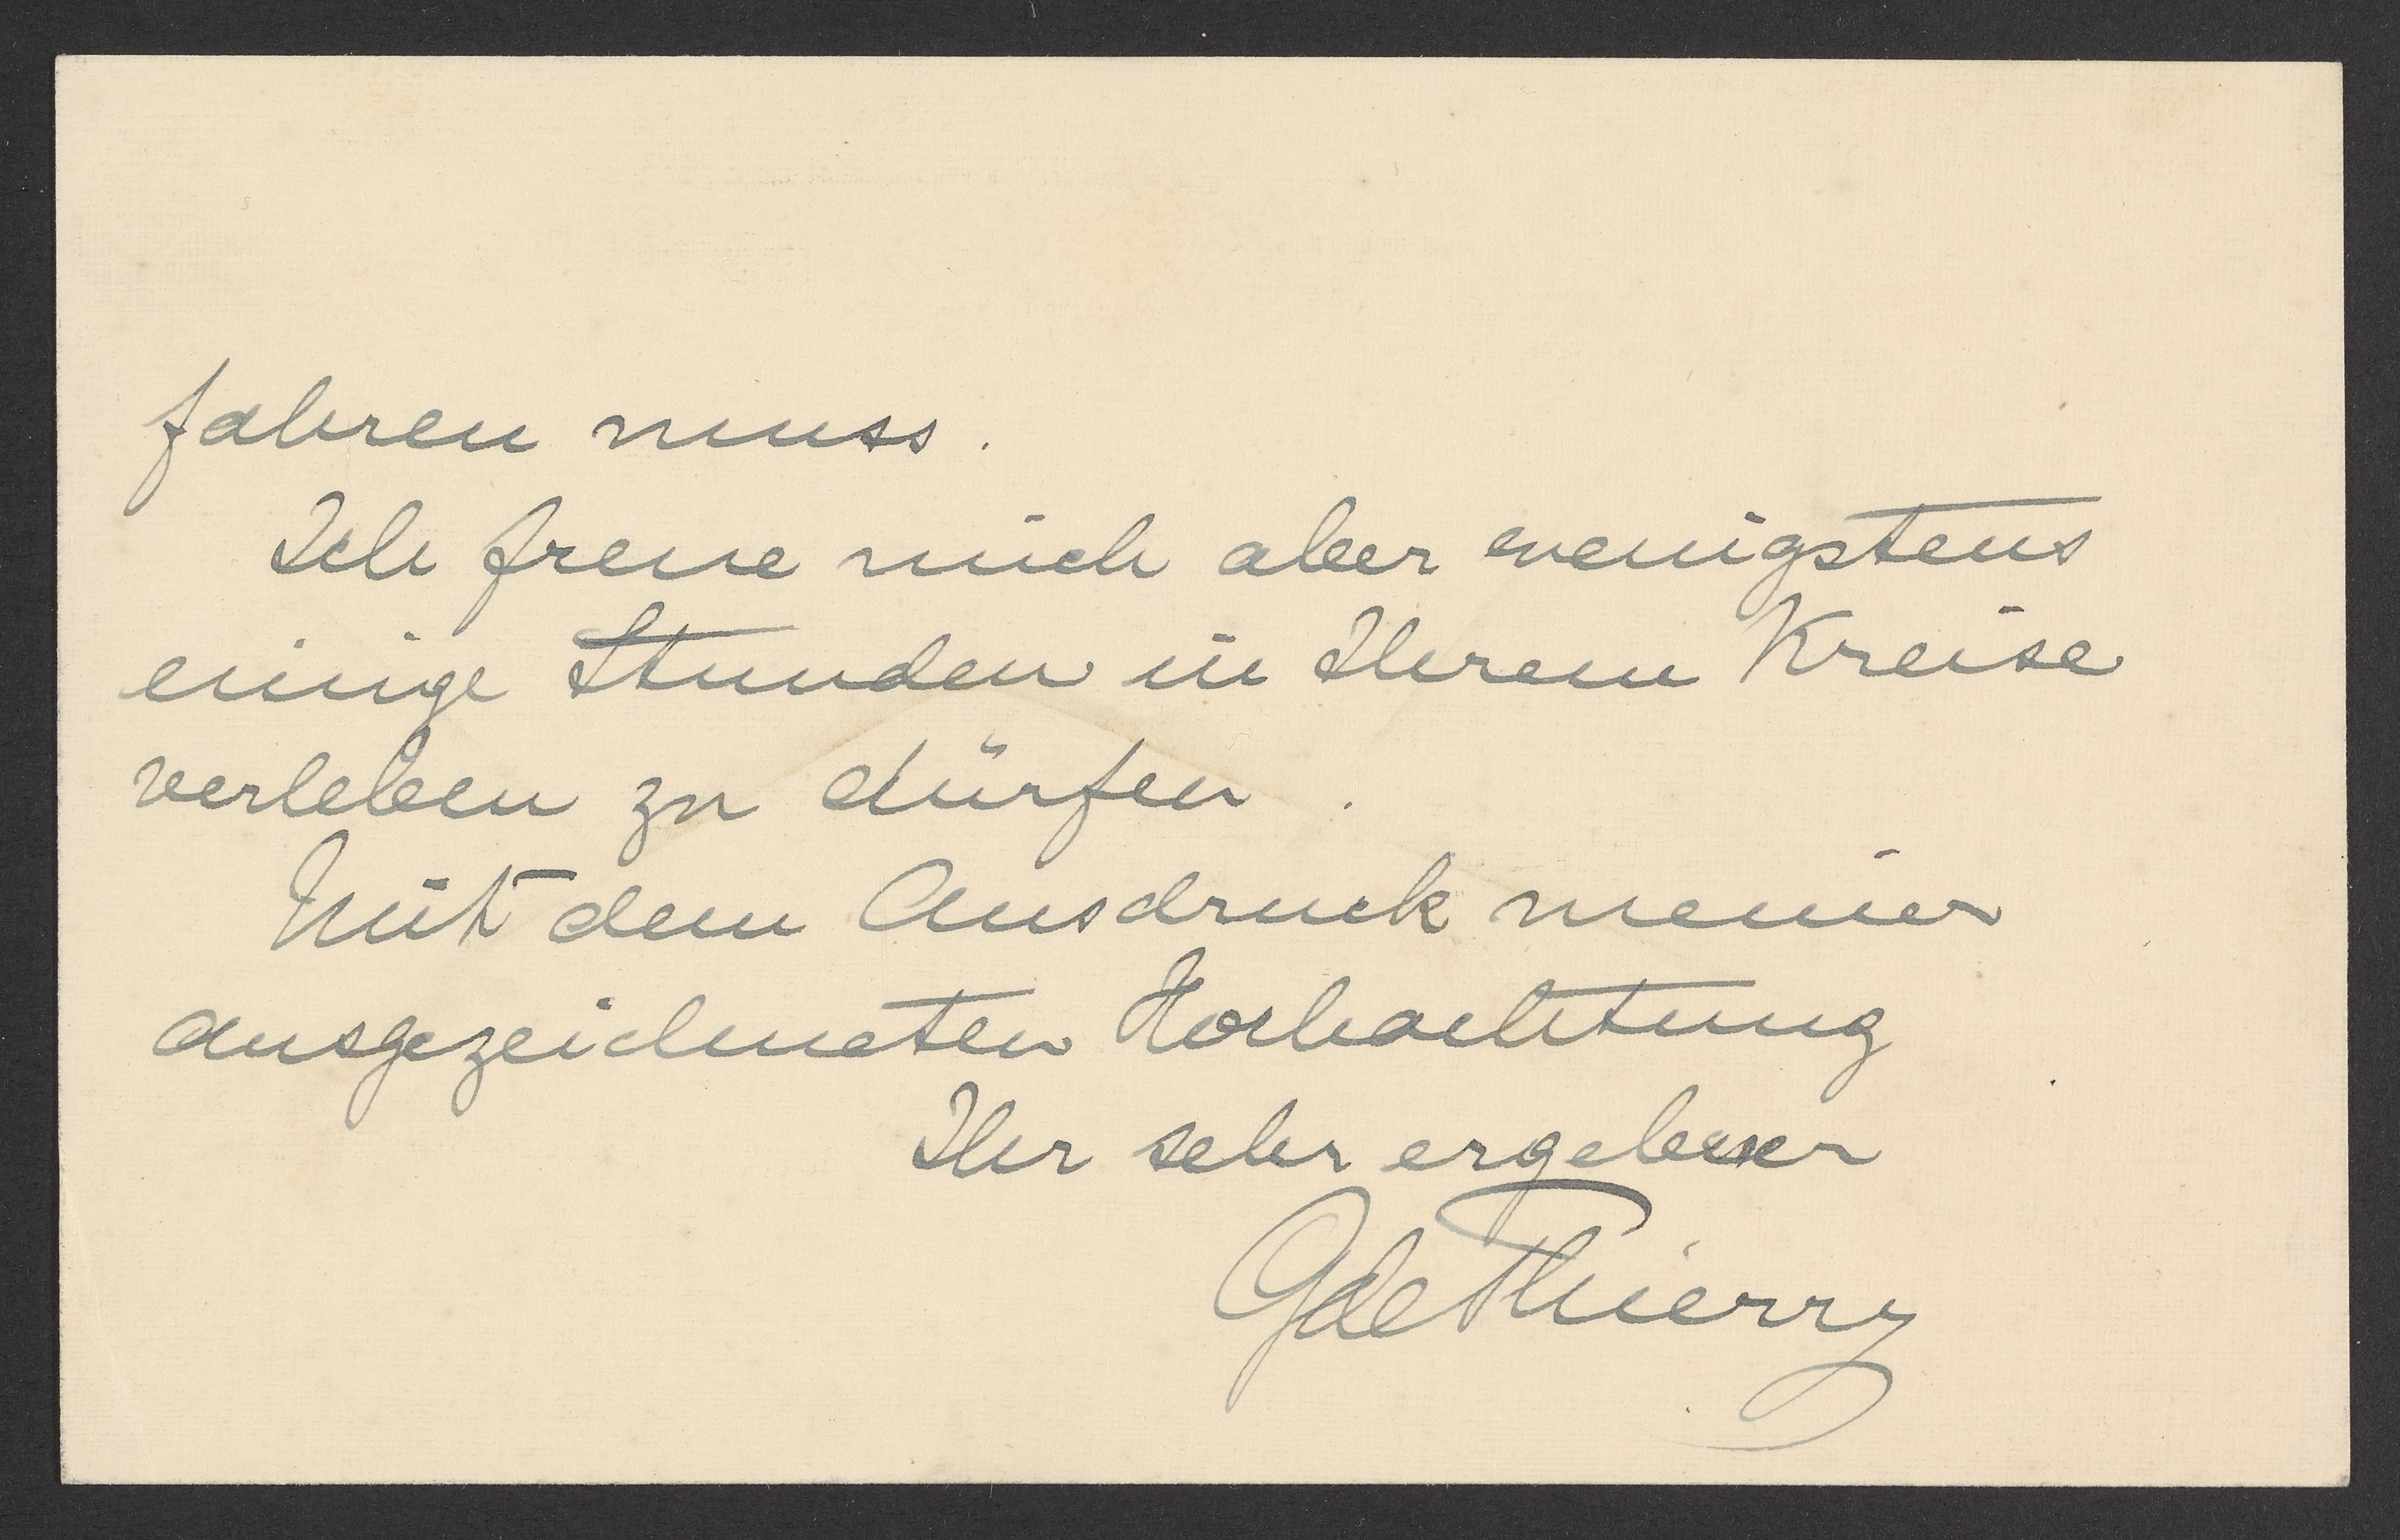 fahren muss.
Ich freue mich aber wenigstens
einige Stunden in Ihrem Kreise
verleben zu dürfen.
Mit dem Ausdruck meiner
ausgezeichneten Hochachtung
Ihr sehr ergebener
GdeThierry